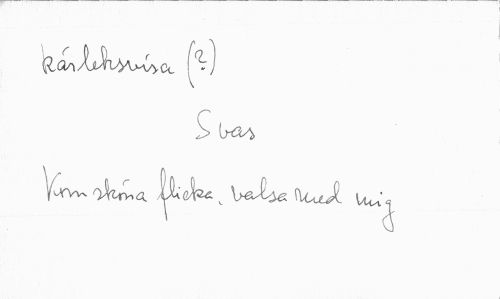 kärleksvisa (?)
Svas
Kom sköna flicka, valsa med mig